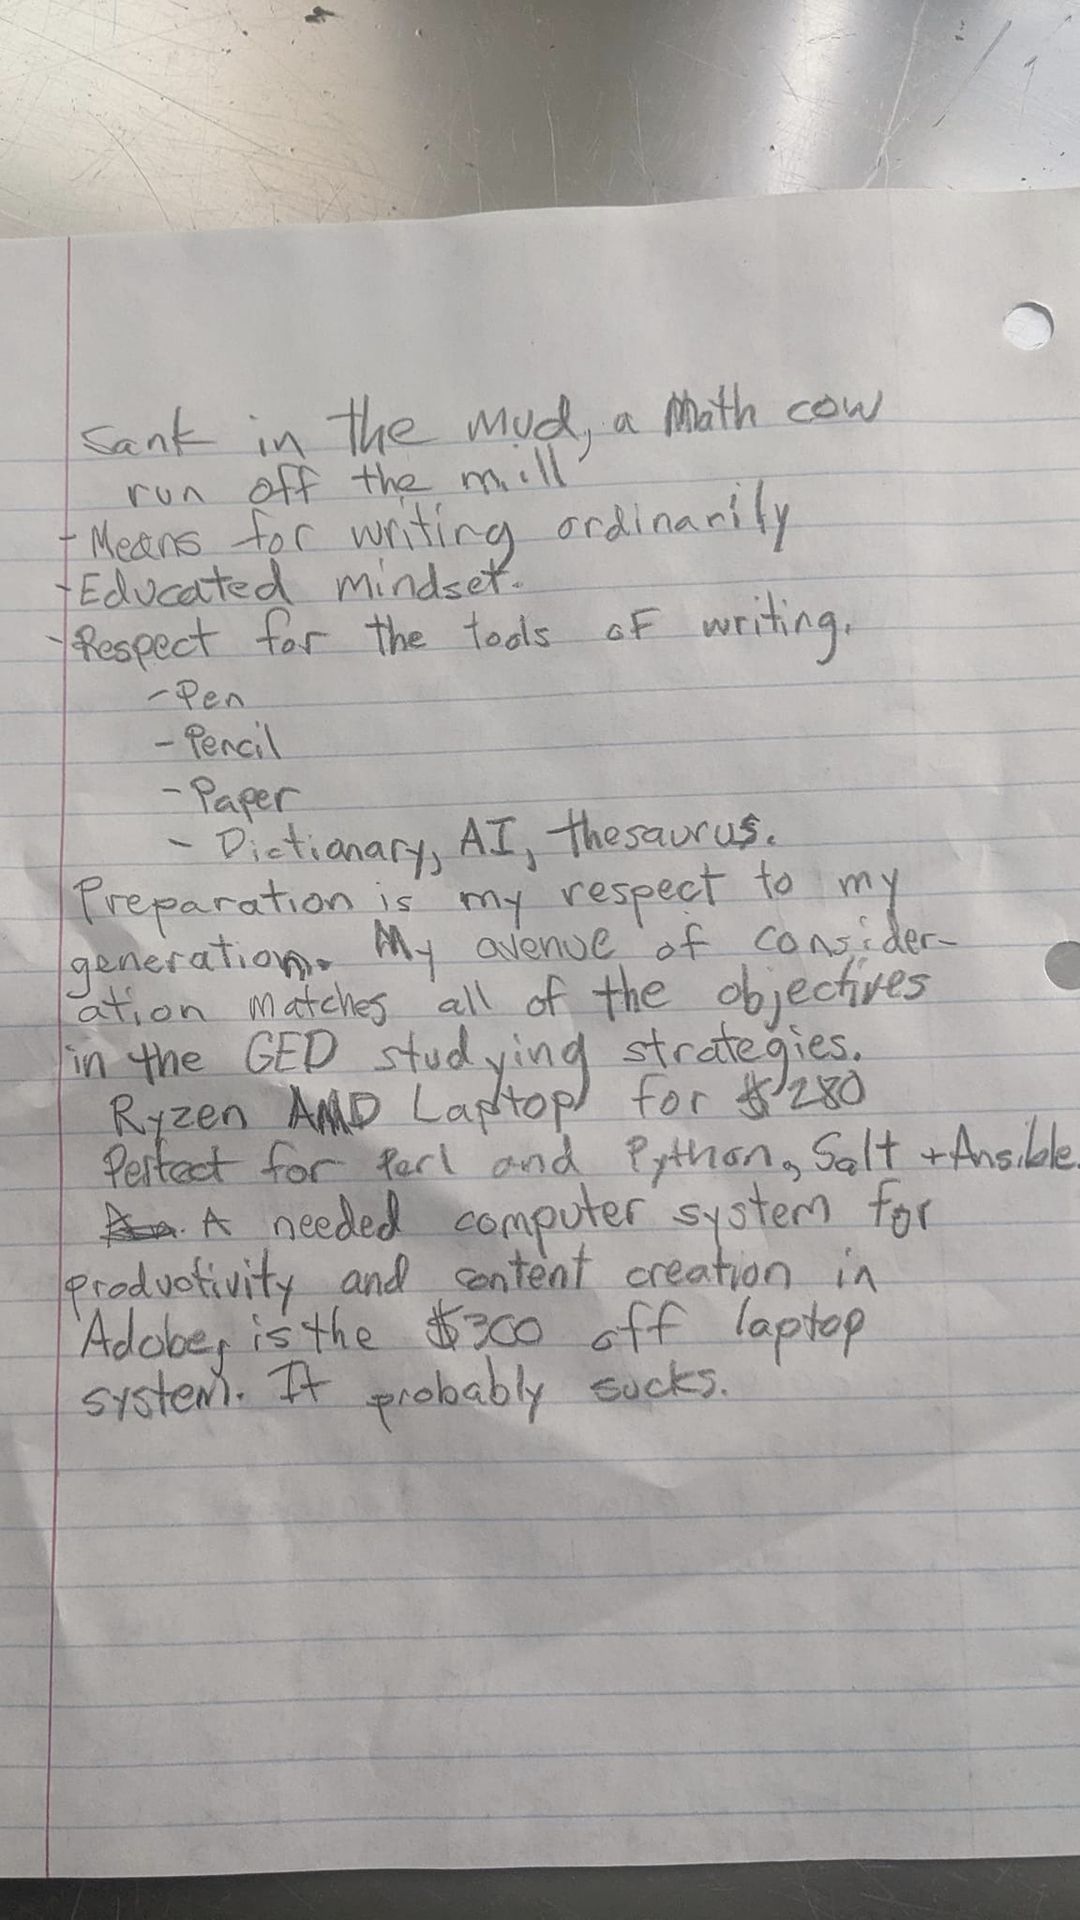 Sank in the Mud, a Math cow
run off the mill
- Means for writing ordinarily
- Educated mindset.
- Respect for the tools of writing.
- Pen
- Pencil
- Paper
- Dictionary, AI, thesaurus.
Preparation is my respect to my
generation. My avenue of consider-
ation matches all of the objectives
in the GED studying strategies.
Ryzen AMD Laptop for $280
Perfect for Perl and Python, Salt + Ansible.
A needed computer system for
productivity and content creation in
Adobe, is the $300 off laptop
system. It probably sucks.